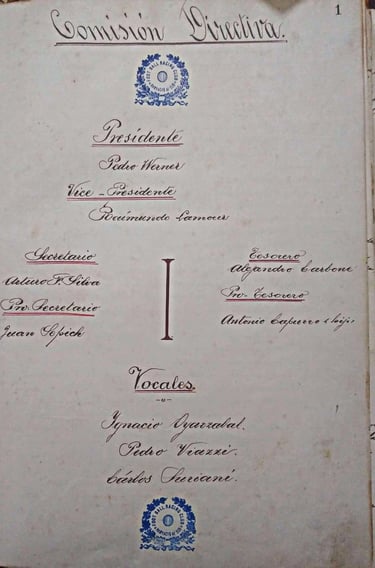 1
Comisión Directiva.
FOOT BALL RACING CLUB
Presidente
Pedro Werner
Vice-Presidente
Raimundo Lamour
Secretario
Arturo F. Silva
Pro-Secretario
Juan Sepich
Tesorero
Alejandro Carbone
Pro-Tesorero
Antonio Capurro
Vocales.
Ignacio Oyarzabal.
Pedro Viazzi.
Cárlos Suriani.
FOOT BALL RACING CLUB